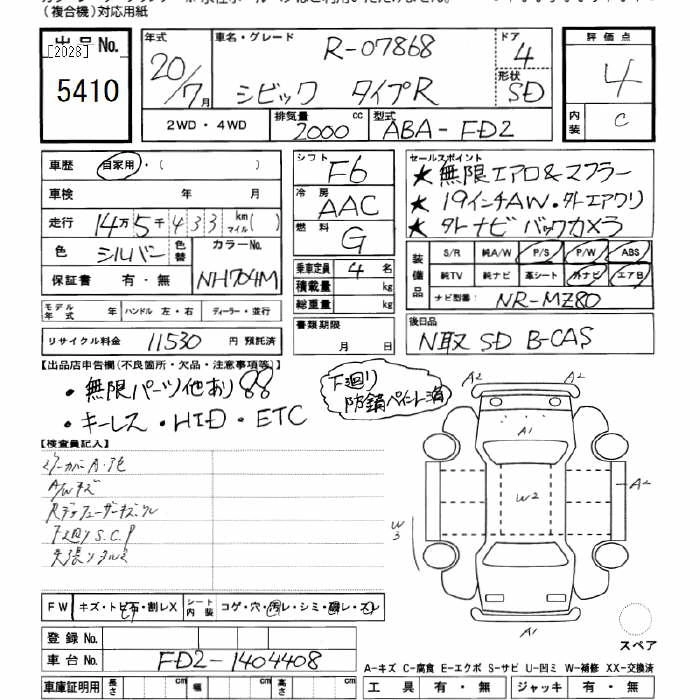 (複合機)対応用紙
出品No.
[2028]
5410
年式
20/7月
車名・グレード
R-07868
シビック タイプR
ドア
4
形状
SD
評価点
4
内装
C
2WD・4WD
排気量
2000 cc
型式
ABA-FD2
車歴 自家用・( )
車検 年 月
走行 14万5千433 km マイル( )
色 シルバー 色替 カラーNo. NH704M
保証書 有・無
モデル年式 年 ハンドル 左・右 ディーラー・並行
リサイクル料金 11530 円 預託済
シフト F6
冷房 AAC
燃料 G
乗車定員 4 名
積載量 kg
総重量 kg
書類期限
月 日
セールスポイント
★無限エアロ&マフラー
★19インチAW・外エアクリ
★外ナビ バックカメラ
装備品
S/R 純A/W P/S P/W ABS
純TV 純ナビ 革シート 外ナビ エアB
ナビ型番: NR-MZ80
後日品
N取 SD B-CAS
【出品店申告欄(不良箇所・欠品・注意事項等)】
・無限パーツ他あり!!
・キーレス・HID・ETC
下廻り
防錆ペイント済
【検査員記入】
A/Wキズ
下廻りS.C.P
A2 A2
A1
W2
A2
W3
A1
スペア
FW キズ・トビ石・割レX シート内装 コゲ・穴・汚レ・シミ・破レ・スレ
登録No.
車台No. FD2-1404408
車庫証明用 長さ cm 幅 cm 高さ cm
A-キズ C-腐食 E-エクボ S-サビ U-凹ミ W-補修 XX-交換済
工具 有・無 ジャッキ 有・無